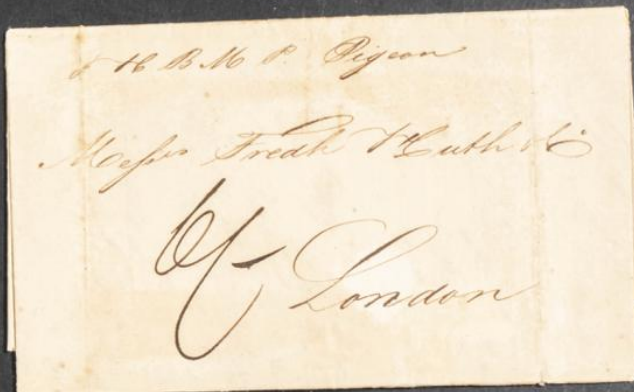 p H B M P. Pigeon
Messrs Fredk Huth & Co
6/-
London